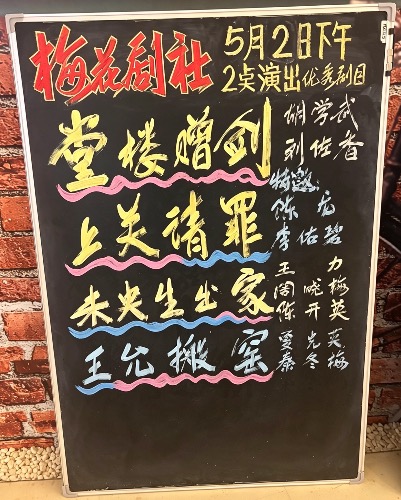 梅花剧社
5月2日下午
2点演出优秀剧目
堂楼赠剑
胡学武
刘佐香
上关请罪
特邀
陈龙
李佑碧
未央生出家
王力
周成梅
陈开英
王允搬窑
夏光英
秦冬梅